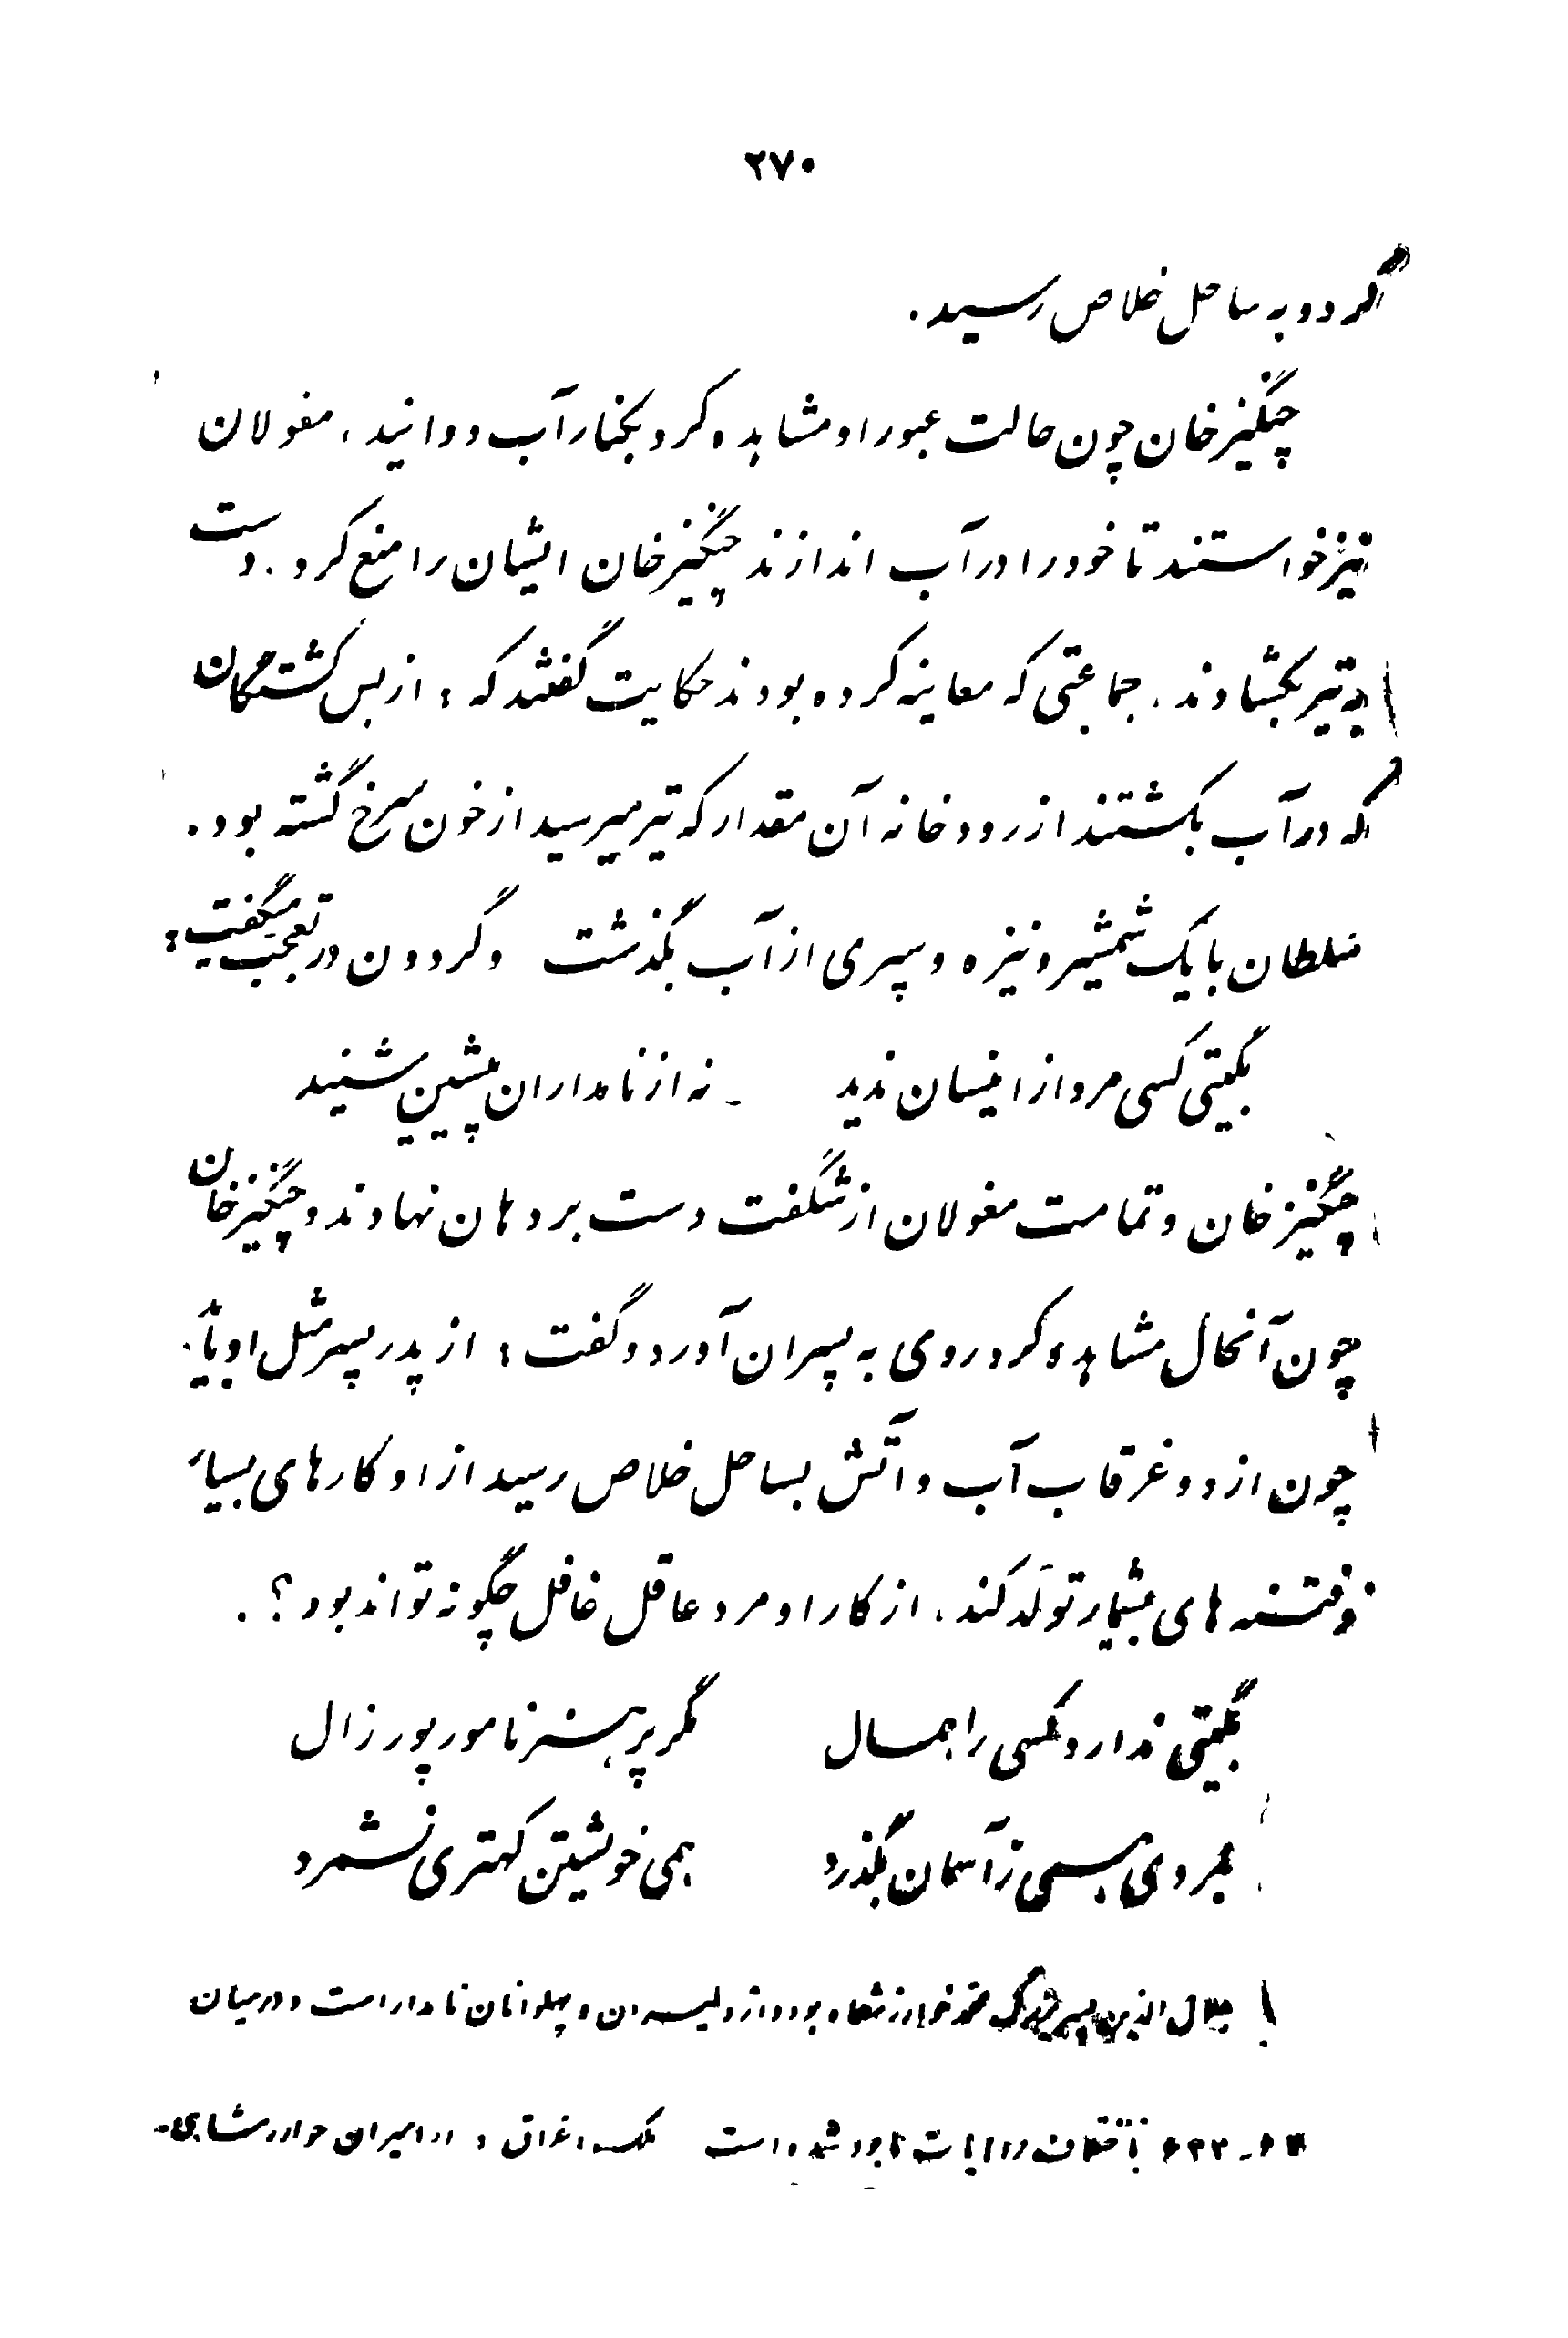 ۲۷۰
کرد و به ساحل خلاص رسید.
چنگیزخان چون حالت عبور او مشاهده کرد بکنار آب دوانید، مغولان
نیز خواستند تا خود را در آب اندازند چنگیزخان ایشان را منع کرد. دست
به تیر بگشادند. جماعتی که معاینه کرده بودند حکایت گفتند که: از بس کشتگان
که در آب بکشتند از رودخانه آن مقدار که تیر میرسید از خون سرخ گشته بود.
سلطان با یک شمشیر و نیزه و سپری از آب بگذشت و گردون در تعجب میگفت:
بگیتی کسی مرد از اینسان ندید نه از نامداران پیشین شنید
چنگیزخان و تمامت مغولان از شگفت دست بر دهان نهادند و چنگیزخان
چون آنحال مشاهده کرد روی به پسران آورد و گفت: از پدر پسر مثل او باید.
چون از دو غرقاب آب و آتش بساحل خلاص رسید از او کارهای بسیار
و فتنه های بیشمار تولّد کند. از کار او مرد عاقل غافل چگونه تواند بود؟.
بگیتی ندارد کسی را همال مگر پرهنر نامور پور زال
بمردی همی ز آسمان بگذرد همی خویشتن کهتری نشمرد
جلال الدین پسر بزرگ محمد خوارزمشاه بود و از دلیران و پهلوانان نامدار است و در میان
باختلاف روایات نابود شده است ملک اغراق از امیران خوارزمشاهی-